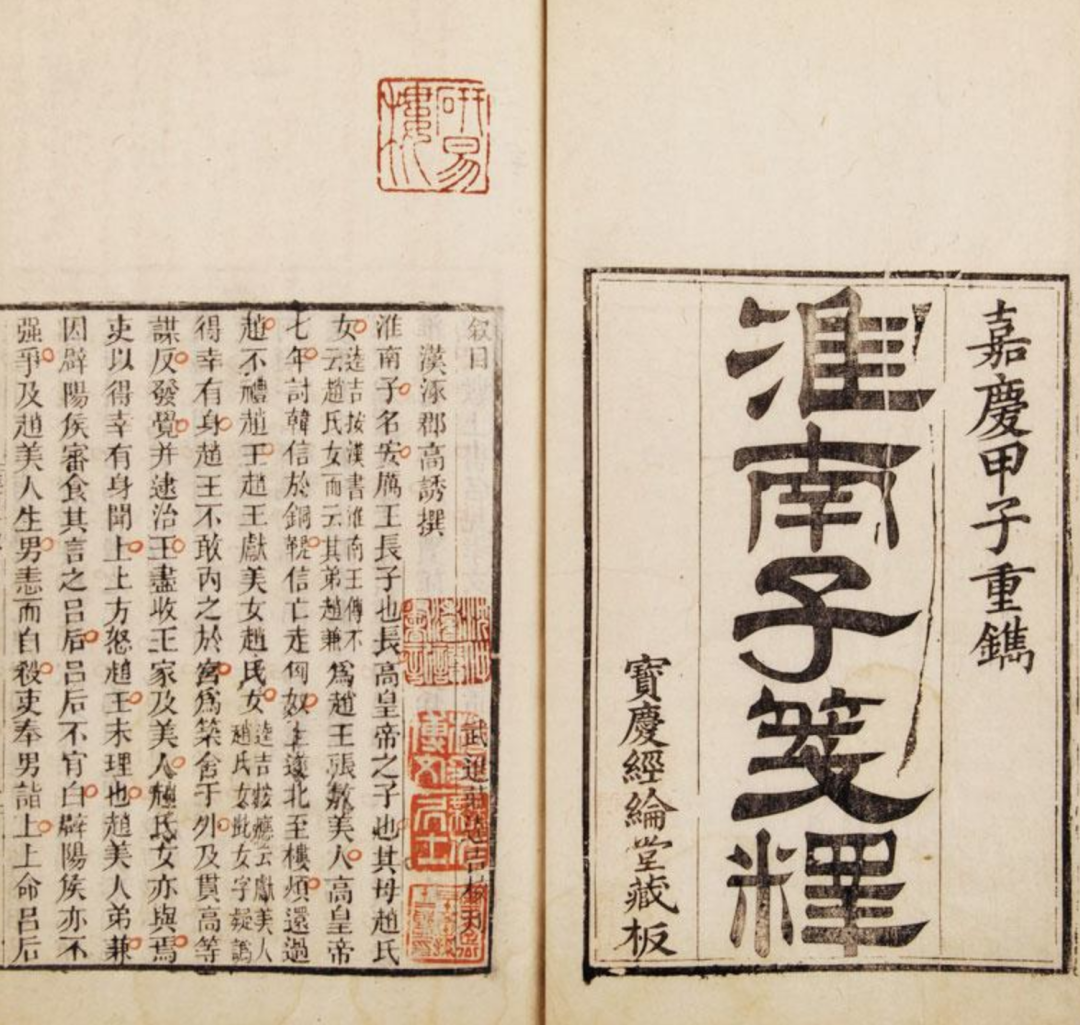 嘉慶甲子重鐫
淮南子箋釋
寶慶經綸堂藏板
研易樓
敘目
武進莊逵吉校刋
漢涿郡高誘撰
淮南子名安厲王長子也長高皇帝之子也其母趙氏
女逵吉按漢書淮南王傳不云趙氏女而云其弟趙兼爲趙王張敖美人高皇帝
七年討韓信於銅鞮信亡走匈奴上遂北至樓煩還過
趙不禮趙王趙王獻美女趙氏女逵吉按應云獻美人趙氏女此女字疑譌
得幸有身趙王不敢內之於宮爲築舍于外及貫高等
謀反發覺并逮治王盡收王家及美人趙氏女亦與焉
吏以得幸有身聞上上方怒趙王未理也趙美人弟兼
因辟陽侯審食其言之呂后呂后不肎白辟陽侯亦不
强爭及趙美人生男恚而自殺吏奉男詣上上命呂后